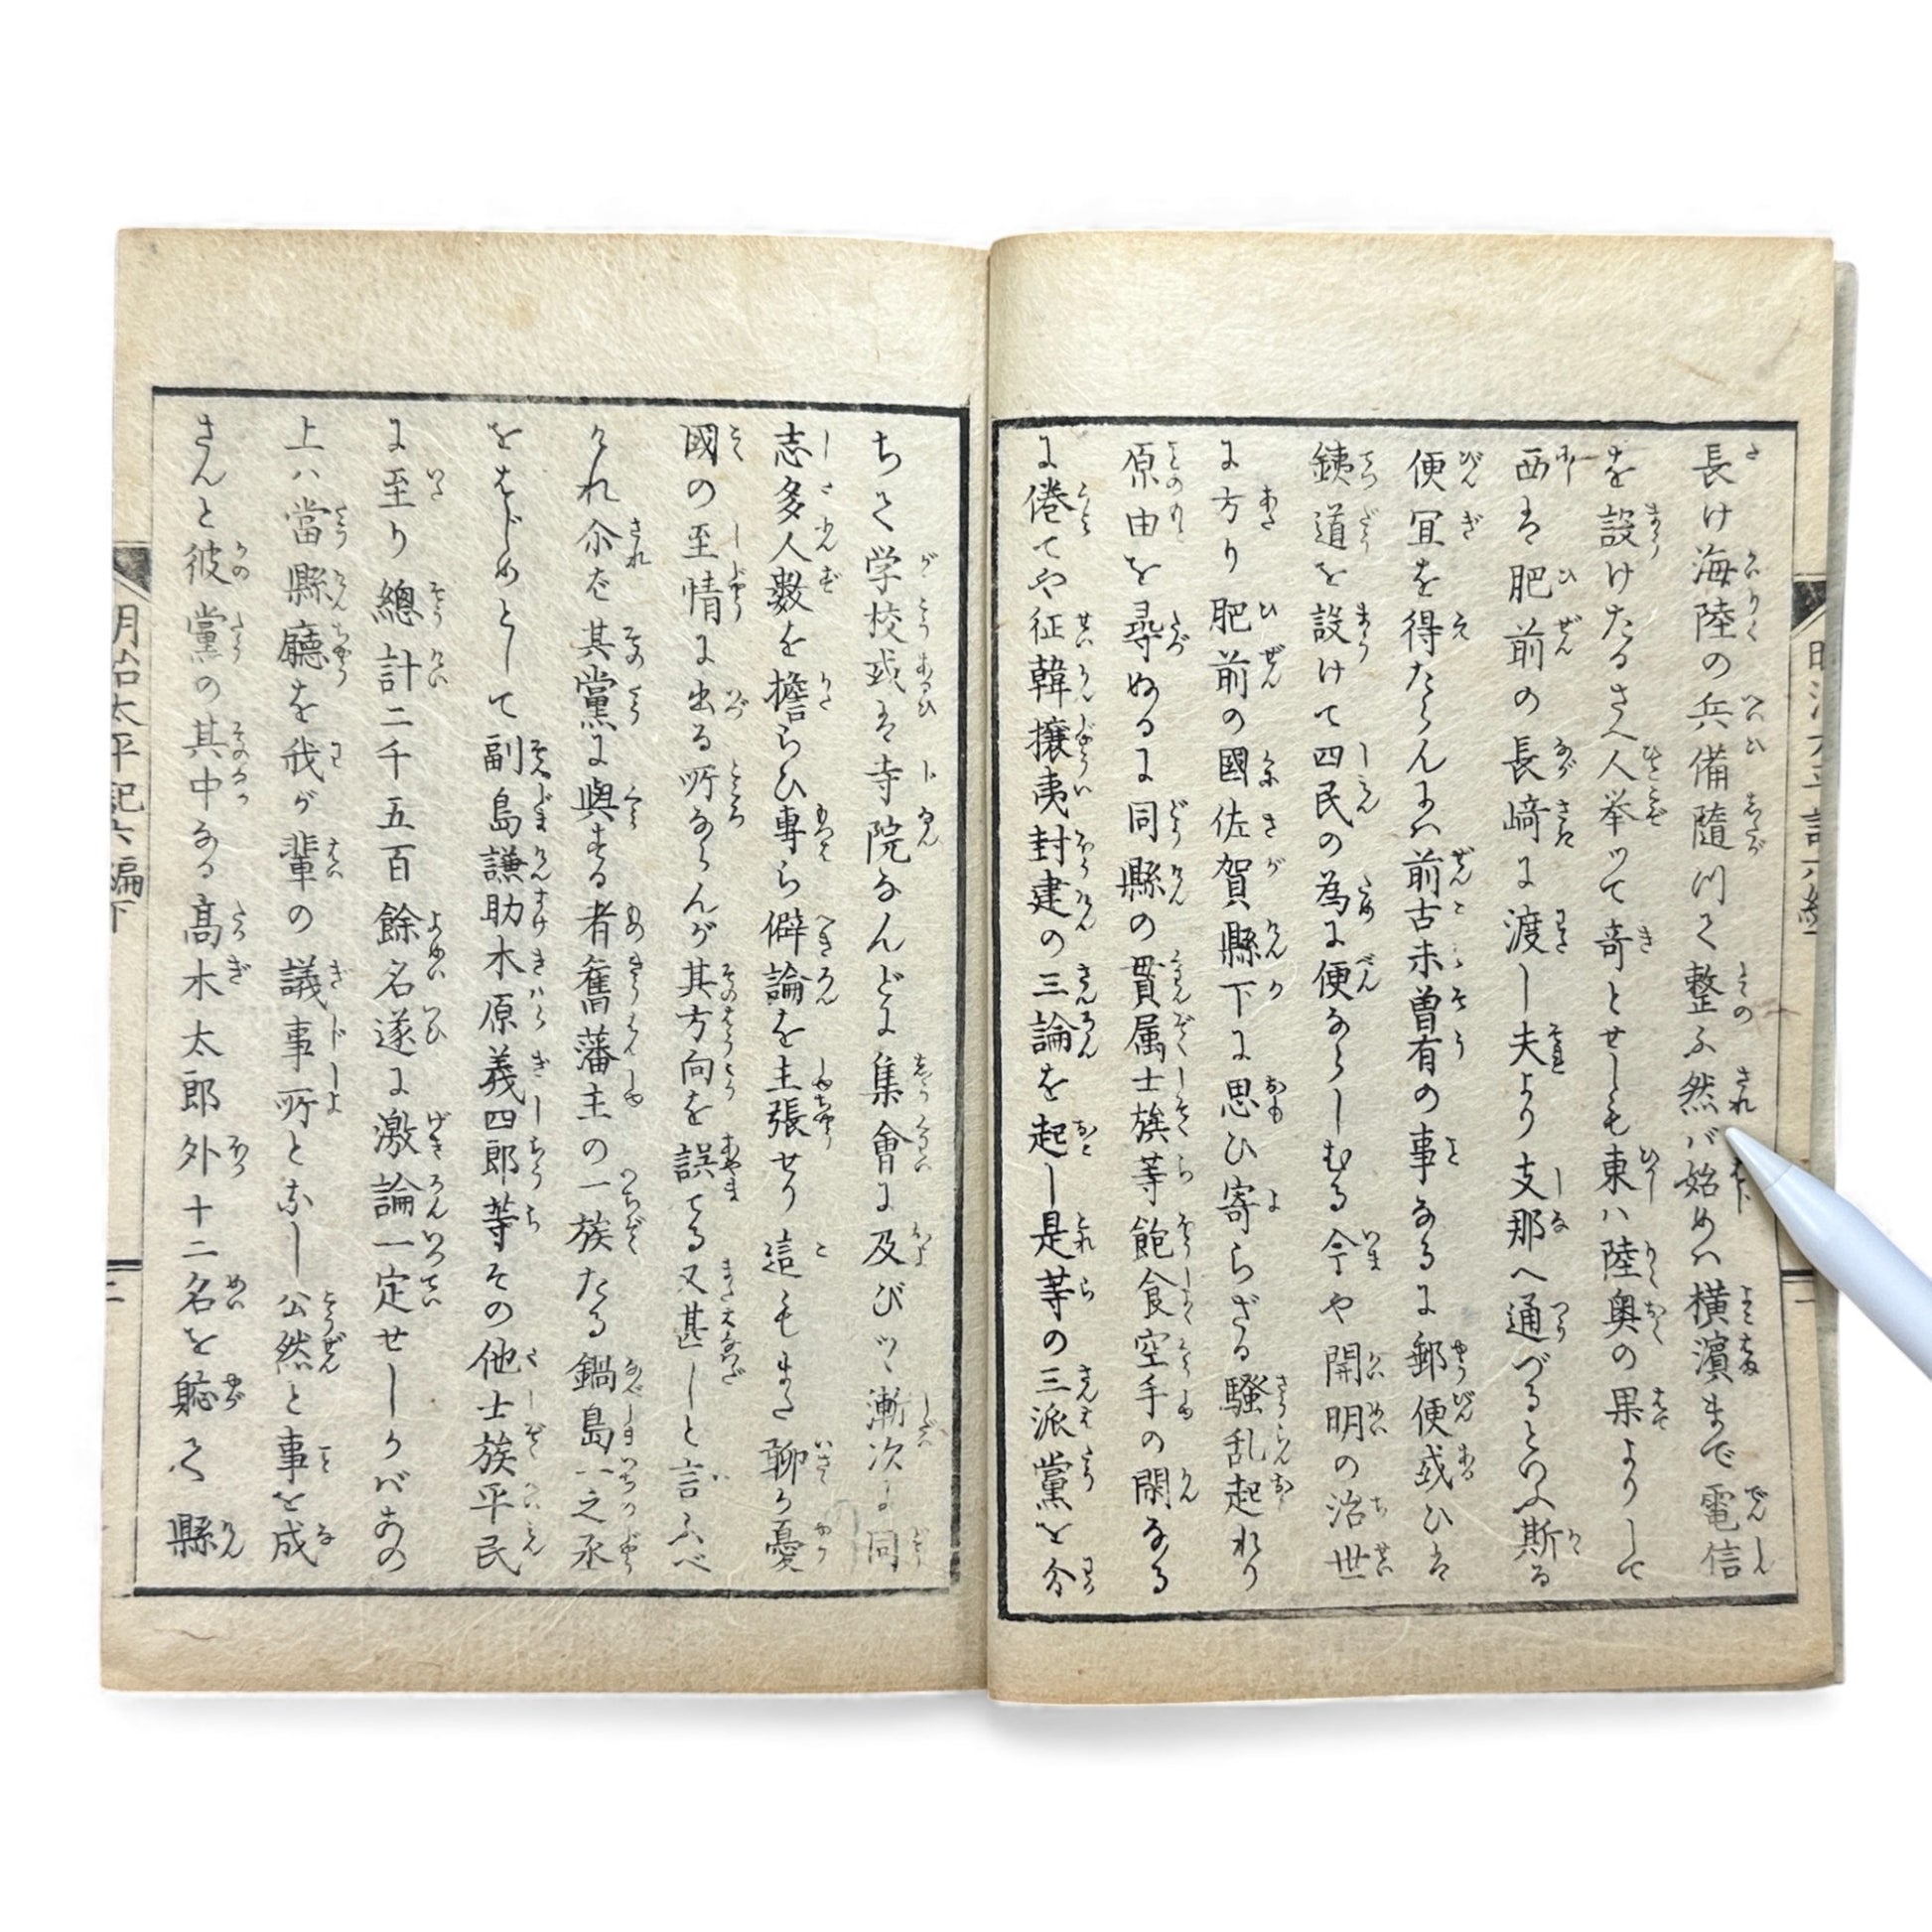 長け海陸の兵備随つて整ふ然バ始めハ横濱まで電信
を設けたるさへ人挙ツて奇とせしも東ハ陸奥の果よりして
西は肥前の長崎に渡し夫より支那へ通づるといふ斯る
便宜を得たらんにハ前古未曽有の事なるに郵便或ひは
銕道を設けて四民の為に便ならしむる今や開明の治世
に方り肥前の國佐賀縣下に思ひ寄らざる騒乱起れり
原由を尋ぬるに同縣の貫属士族等飽食空手の閑なる
に倦てや征韓攘夷封建の三論を起し是等の三派黨を分
ちて学校或は寺院なんどに集會に及びツヽ漸次に同
志多人數を擔らひ専ら僻論を主張せり這もまた聊か憂
國の至情に出る所ならんが其方向を誤てる又甚しと言ふべ
けれ尒ば其黨に與する者舊藩主の一族たる鍋島一之丞
をはじめとして副島謙助木原義四郎等その他士族平民
に至り總計二千五百餘名遂に激論一定せしかバあの
上ハ當縣廳を我が輩の議事所となし公然と事を成
さんと彼黨の其中なる髙木太郎外十二名を恥て縣
明治太平記六編下